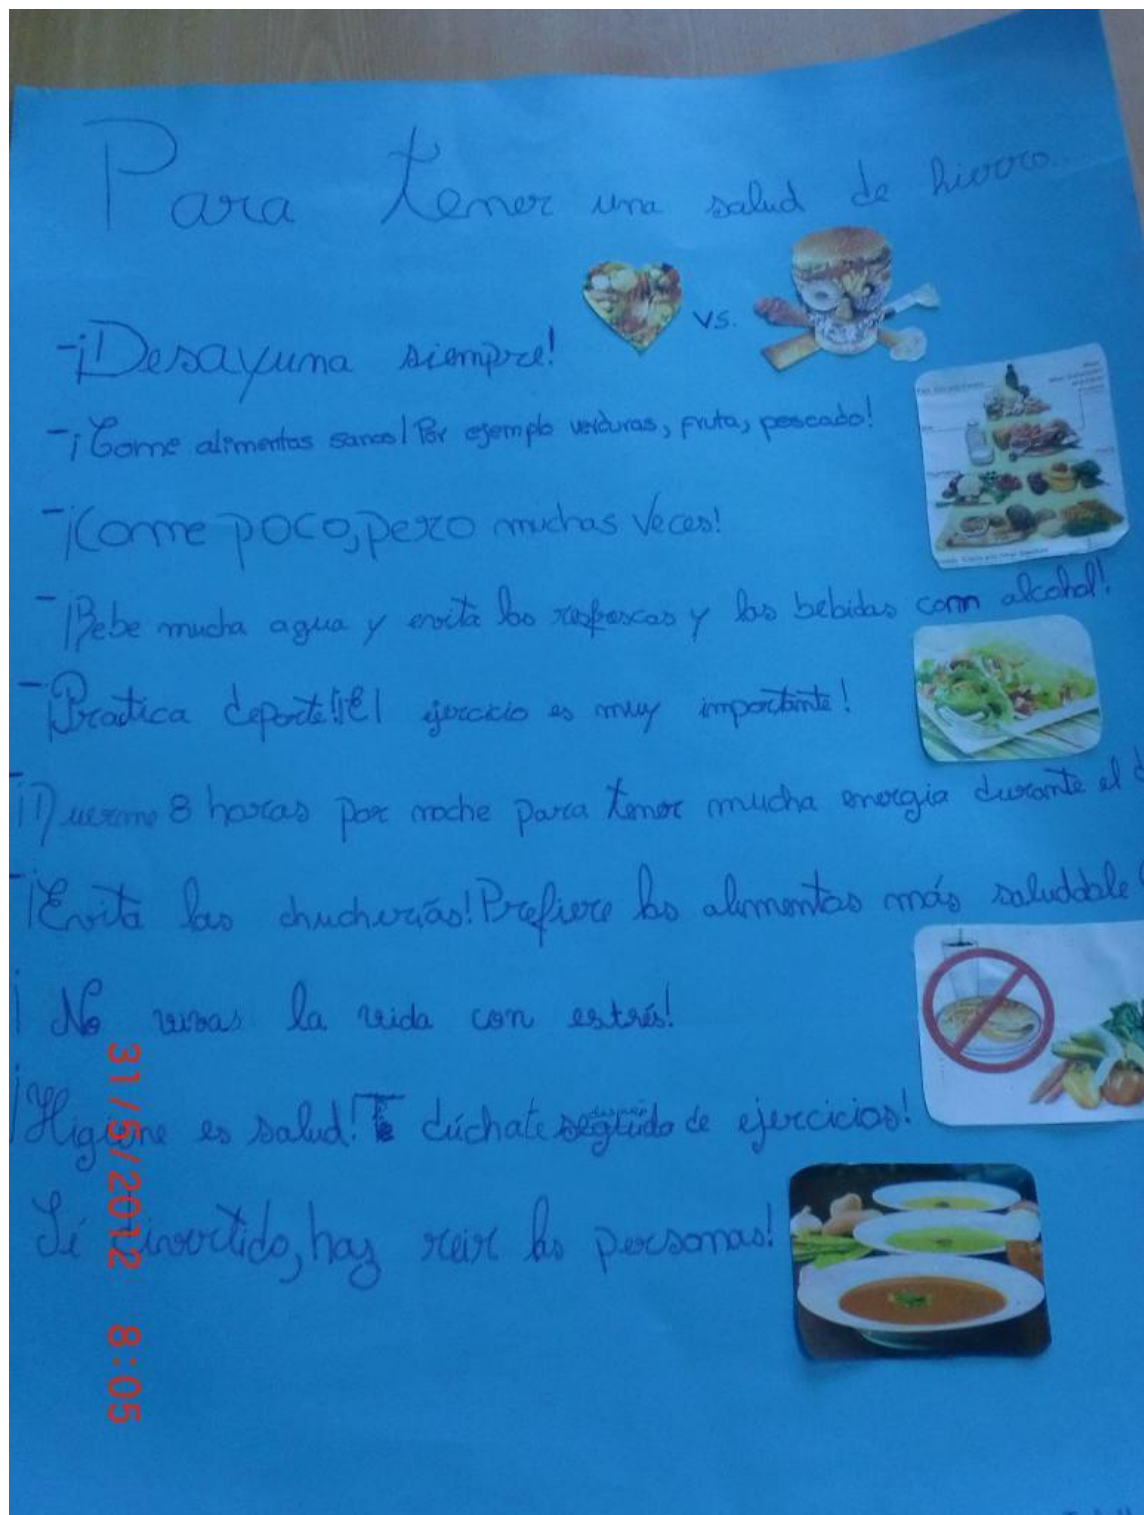 Para tener una salud de hierro...
vs.
-¡Desayuna siempre!
-¡Come alimentos sanos! Por ejemplo verduras, fruta, pescado!
-¡Come poco, pero muchas veces!
-¡Bebe mucha agua y evita los refrescos y las bebidas com alcohol!
-¡Practica deporte! ¡El ejercicio es muy importante!
-¡Duerme 8 horas por noche para tener mucha energia durante el d
-¡Evita las chucherías! Prefiere los alimentos más saludable
¡No vivas la vida con estrés!
¡Higiene es salud! Te dúchate seguido de ejercicios!
Sé divertido, haz reir las personas!
31/5/2012 8:05